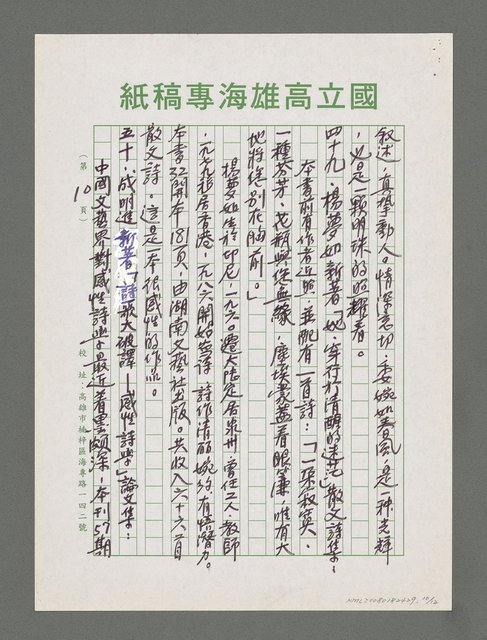 國立高雄海專稿紙
敘述，真摯動人。情深意切，委婉如春風，是一种光輝
，必是一顆明珠的照耀着。
四十九、楊夢如新著「她，穿行於清醒的迷茫」散文詩集：
本書前有作者近照，並配有一首詩：「一朵寂寞、
一種芬芳，花瓶與你無緣，塵埃蒙蓋着眼簾，唯有大
地將您別在胸前。」
楊夢如生於印尼，一九六〇遷大陸定居泉州，曾任工人、教師
，一九七九移居香港，一九八六開始寫詩，詩作清丽婉約，有悟潛力。
本書32開本181頁，由湖南文藝社出版。共收入六十六首
散文詩。這是一本很感性的作品。
五十、成明進新著「詩歌大破譯—感性詩學」論文集：
中國文藝界對感性詩學最近着墨頗深，本刊57期
（第10頁）
校址：高雄市楠梓區海專路一四二號
NMTL20080182429 10/12